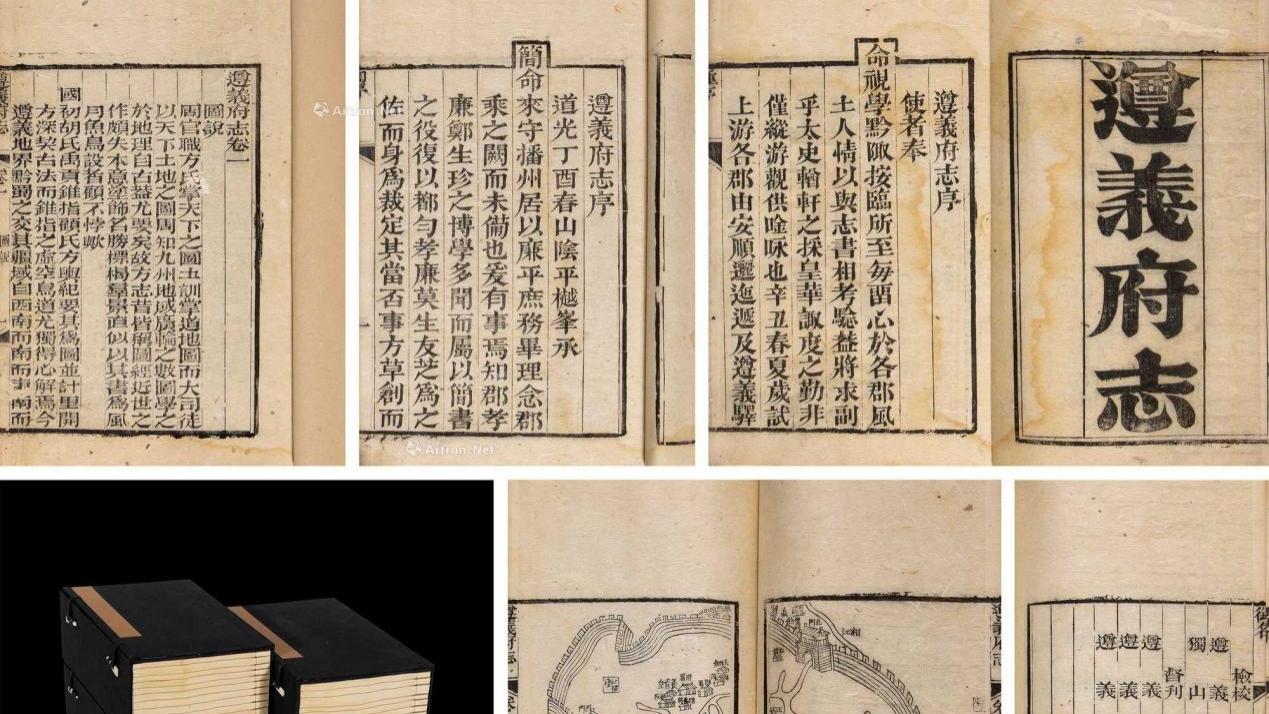 遵義府志卷一
圖說
周官職方氏掌天下之圖土訓掌道地圖而大司徒
以天下土地之圖周知九州地域廣輪之數圖學之
於地理自古益尤要矣故方志者皆稱圖經近世之
作頗失本意塗飾名勝標楬羣景直似以其書爲風
月魚鳥設者頗不悖歟
國初胡氏禹貢錐指顧氏方輿紀要其爲圖並計里開
方深契古法而錐指之虛空鳥道尤獨得心解焉今
遵義地界黔蜀之交其疆域自西南而南而事南而
遵義府志
遵義府志序
道光丁酉春山陰平樾峯承
簡命來守播州居以廉平庶務畢理念郡
乘之闕而未備也爰有事焉知郡孝
廉鄭生珍之博學多聞而屬以簡書
之役復以鄰勻孝廉莫生友芝爲之
佐而身爲裁定其當否事方草創而
Artron.Net
遵義府志
遵義府志序
使者奉
命視學黔陬按臨所至每畱心於各郡風
土人情以與志書相考驗益將求副
乎太史輶軒之採皇華諏度之勤非
僅縱游觀供唫咏也辛丑春夏歲試
上游各郡由安順邐迤遞及遵義驛
遵義府志
湘江
遵義府志
檢校
遵義
獨山
督刊
遵義
遵義
遵義